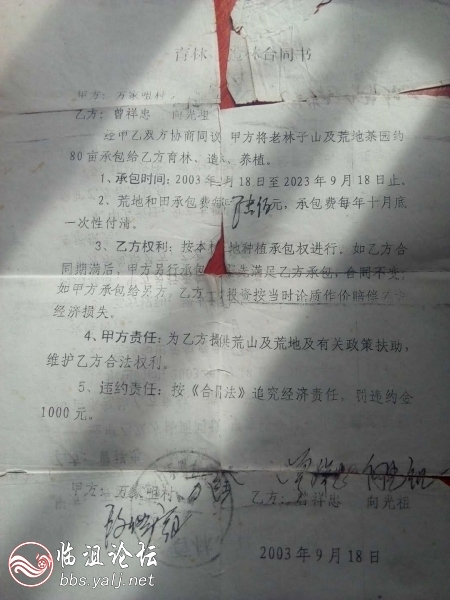 育林 林合同书
甲方：万家咀村
乙方：曾祥忠 向光祖
经甲乙双方协商同议 甲方将老林子山及荒地茶园约
80亩承包给乙方育林、造 、养植。
1、承包时间：2003年 月18日至2023年9月18日止。
2、荒地和田承包费每年 陆佰元，承包费每年十月底
一次性付清。
3、乙方权利：按本 地种植承包权进行。如乙方合
同期满后，甲方另行承包 先满足乙方承包，合同不变，
如甲方承包给另方，乙方 投资按当时论质作价赔偿
经济损失。
4、甲方责任：为乙方提供荒山及荒地及有关政策扶助，
维护乙方合法权利。
5、违约责任：按《合同法》追究经济责任，罚违约金
1000元。
甲方：万家咀村
乙方：曾祥忠 向光祖
2003年9月18日
临沮论坛
bbs.yalj.net